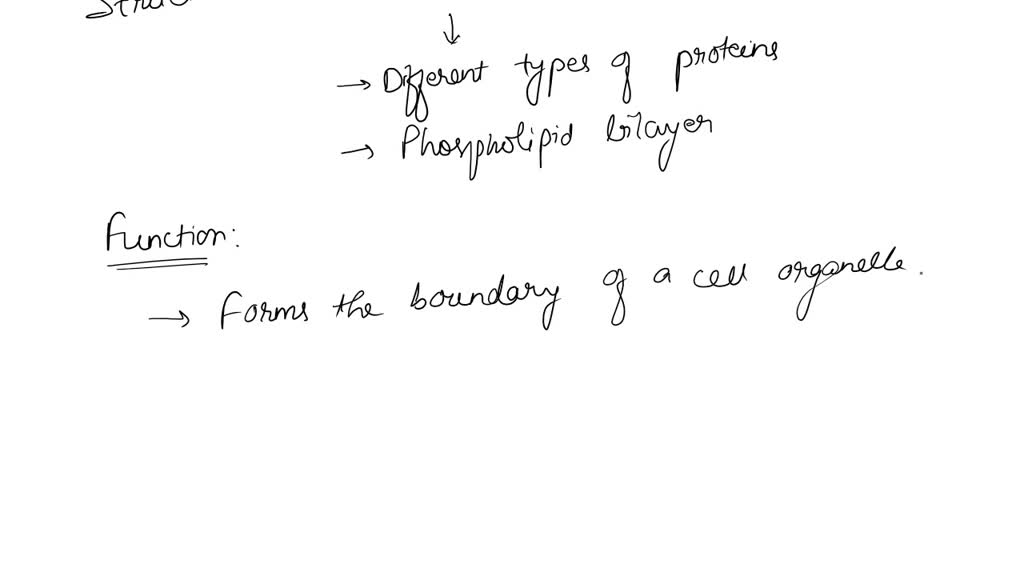 ↓
→ Different types of proteins
→ Phospholipid bilayer
Function:
→ Forms the boundary of a cell organelle.